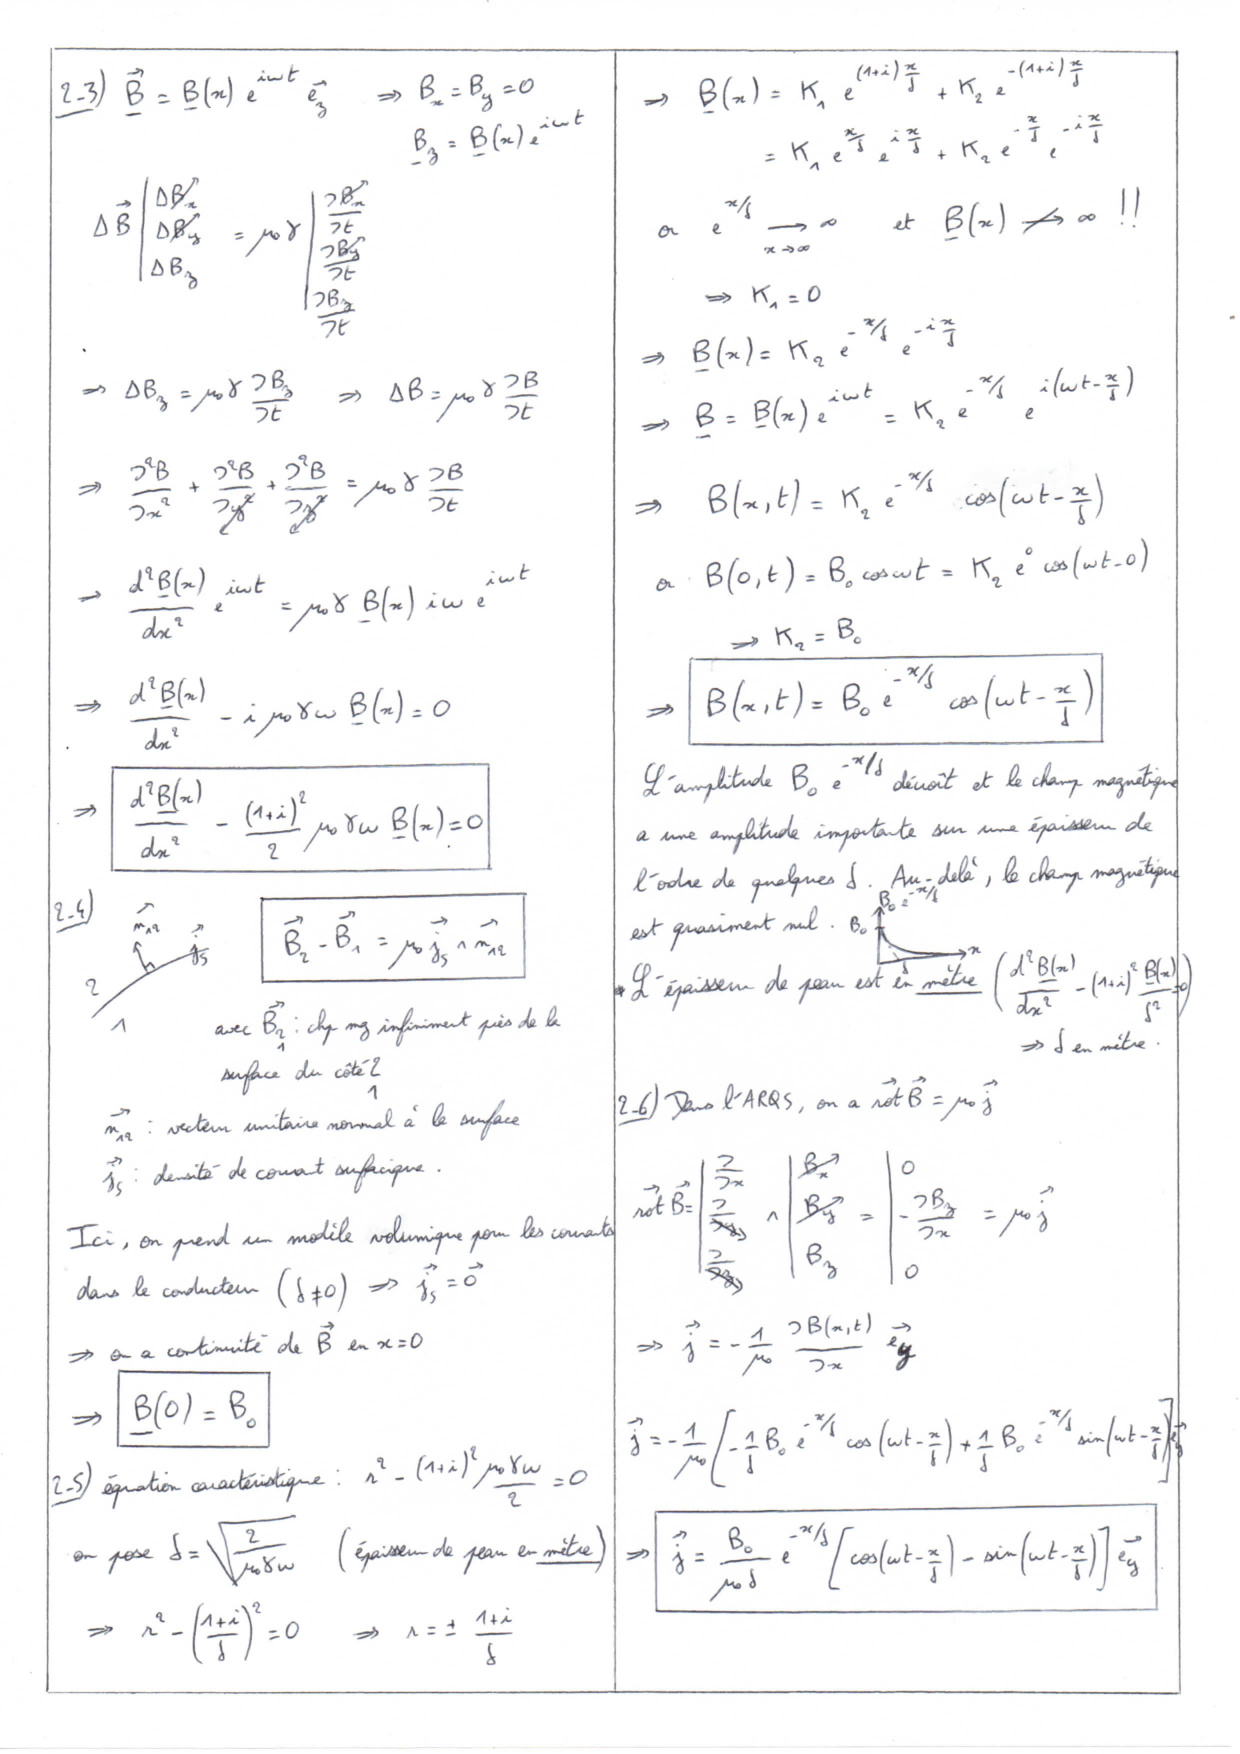 2-3) B⃗ = B(x) e^{iωt} e⃗_z ⇒ B_x = B_y = 0
B_z = B(x) e^{iωt}
ΔB⃗ | ΔB_x ΔB_y ΔB_z = μ₀γ | ∂B_x/∂t ∂B_y/∂t ∂B_z/∂t
⇒ ΔB_z = μ₀γ ∂B_z/∂t ⇒ ΔB = μ₀γ ∂B/∂t
⇒ ∂²B/∂x² + ∂²B/∂y² + ∂²B/∂z² = μ₀γ ∂B/∂t
⇒ d²B(x)/dx² e^{iωt} = μ₀γ B(x) iω e^{iωt}
⇒ d²B(x)/dx² - i μ₀γω B(x) = 0
⇒ d²B(x)/dx² - (1+i)²/2 μ₀γω B(x) = 0
2-4) n⃗₁₂ j⃗_s 2 1 B⃗₂ - B⃗₁ = μ₀ j⃗_s ∧ n⃗₁₂
avec B⃗₂ : chp mg infiniment près de la
1
surface du côté 2
1
n⃗₁₂ : vecteur unitaire normal à la surface
j⃗_s : densité de courant surfacique.
Ici, on prend un modèle volumique pour les courants
dans le conducteur (δ≠0) ⇒ j⃗_s = 0⃗
⇒ on a continuité de B⃗ en x=0
⇒ B(0) = B₀
2-5) équation caractéristique : r² - (1+i)² μ₀γω/2 = 0
on pose δ = √(2/μ₀γω) (épaisseur de peau en mètre)
⇒ r² - ((1+i)/δ)² = 0 ⇒ r = ± (1+i)/δ
⇒ B(x) = K₁ e^{(1+i)x/δ} + K₂ e^{-(1+i)x/δ}
= K₁ e^{x/δ} e^{i x/δ} + K₂ e^{-x/δ} e^{-i x/δ}
or e^{x/δ} → ∞ et B(x) ↛ ∞ !!
x→∞
⇒ K₁ = 0
⇒ B(x) = K₂ e^{-x/δ} e^{-i x/δ}
⇒ B = B(x) e^{iωt} = K₂ e^{-x/δ} e^{i(ωt - x/δ)}
⇒ B(x,t) = K₂ e^{-x/δ} cos(ωt - x/δ)
or B(0,t) = B₀ cos ωt = K₂ e⁰ cos(ωt-0)
⇒ K₂ = B₀
⇒ B(x,t) = B₀ e^{-x/δ} cos(ωt - x/δ)
L'amplitude B₀ e^{-x/δ} décroît et le champ magnétique
a une amplitude importante sur une épaisseur de
l'ordre de quelques δ. Au-delà, le champ magnétique
est quasiment nul. B₀ B₀ e^{-x/δ} δ x
• L'épaisseur de peau est en mètre (d²B(x)/dx² - (1+i)² B(x)/δ² = 0)
⇒ δ en mètre.
2-6) Dans l'ARQS, on a rot⃗ B⃗ = μ₀ j⃗
rot⃗ B⃗ = | ∂/∂x ∂/∂y ∂/∂z ∧ | B_x B_y B_z = | 0 -∂B_z/∂x 0 = μ₀ j⃗
⇒ j⃗ = -1/μ₀ ∂B(x,t)/∂x e⃗_y
j⃗ = -1/μ₀ [-1/δ B₀ e^{-x/δ} cos(ωt - x/δ) + 1/δ B₀ e^{-x/δ} sin(ωt - x/δ)] e⃗_y
⇒ j⃗ = B₀/(μ₀δ) e^{-x/δ} [cos(ωt - x/δ) - sin(ωt - x/δ)] e⃗_y